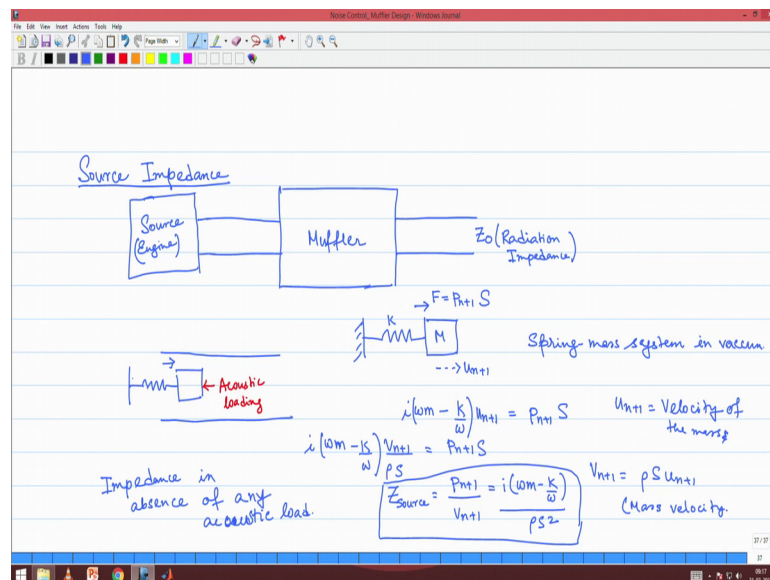 Noise Control_Muffler Design - Windows Journal
File Edit View Insert Actions Tools Help
Page Width
B I
Source Impedance
Source
(Engine)
Muffler
Z0 (Radiation
Impedance)
→ F = Pn+1 S
K
M
---> Un+1
Spring-mass system in vaccum
← Acoustic
loading
i(ωm - K/ω) Un+1 = Pn+1 S
Un+1 = Velocity of
the mass
i(ωm - K/ω) Vn+1/ρS = Pn+1 S
Impedance in
absence of any
acoustic load.
Zsource = Pn+1/Vn+1 = i(ωm - K/ω)/ρS2
Vn+1 = ρS Un+1
(Mass velocity.
37 / 37
37
09:17